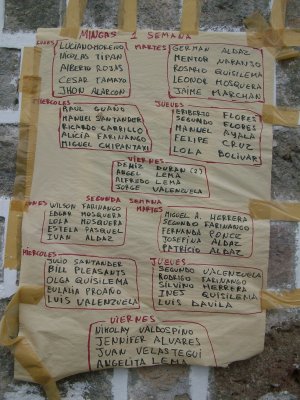 MINGAS 1 SEMANA
LUNES
LUCIANO MORENO
NICOLAS TIPAN
ALBERTO ROJAS
CESAR TAMAYO
JHON ALARCON
MARTES
GERMAN ALDAZ
MENTOR NARANJO
ROSARIO QUISILEMA
LEONOR MOSQUERA
JAIME MARCHAN
MIERCOLES
RAUL GUAÑO
MANUEL SANTANDER
RICARDO CARRILLO
ALICIA FARINANGO
MIGUEL CHIPANTAXI
JUEVES
HERIBERTO FLORES
SEGUNDO FLORES
MANUEL AYALA
FELIPE CRUZ
LOLA BOLIVAR
VIERNES
DENIZ DURAN (2)
ANGEL LEMA
ALFREDO LEMA
JORGE VALENZUELA
SEGUNDA SEMANA
LUNES
WILSON FARINANGO
EDGAR MOSQUERA
LOLA MOSQUERA
ESTELA PASQUEL
IVAN ALDAZ
MARTES
MIGUEL A. HERRERA
SEGUNDO FARINANGO
FERNANDA PONCE
JOSEFINA ALDAZ
PATRICIO ALDAZ
MIERCOLES
JULIO SANTANDER
BILL PLEASANTS
OLGA QUISILEMA
EULALIA PROAÑO
LUIS VALENZUELA
JUEVES
SEGUNDO VALENZUELA
RODRIGO FARINANGO
SILVINO HERRERA
INES QUISILEMA
LUIS DAVILA
VIERNES
NIKOLAY VALDOSPINO
JENNIFER ALVARES
JUAN VELASTEGUI
ANGELITA LEMA